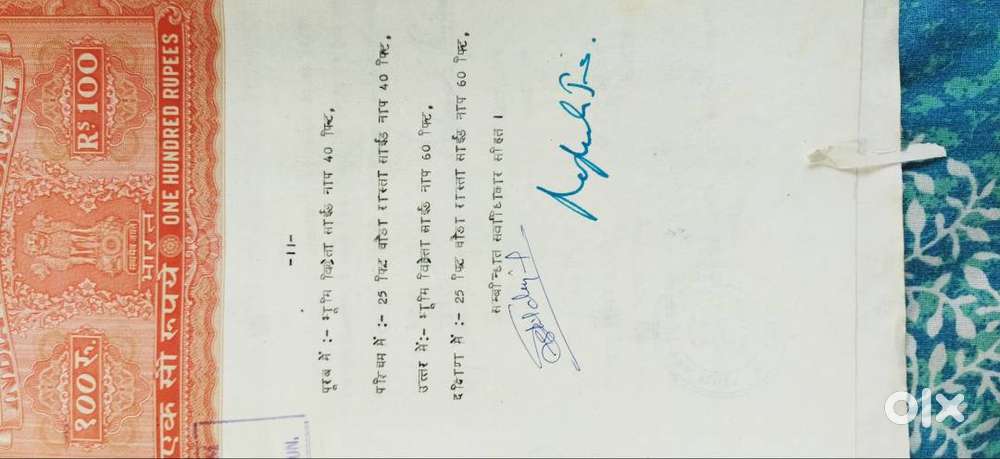 INDIA
NON JUDICIAL
१०० रु.
भारत
सत्यमेव जयते
RS 100
एक सौ रुपये ONE HUNDRED RUPEES
-11-
पूरब में :- भूमि विक्रेता साईड नाप 40 फिट,
पश्चिम में :- 25 फिट चौडा रास्ता साईड नाप 40 फिट,
उत्तर में:- भूमि विक्रेता साईड नाप 60 फिट,
दक्षिण में :- 25 फिट चौडा रास्ता साईड नाप 60 फिट,
सम्बन्धित सर्वाधिकार सहित ।
UN.
olx